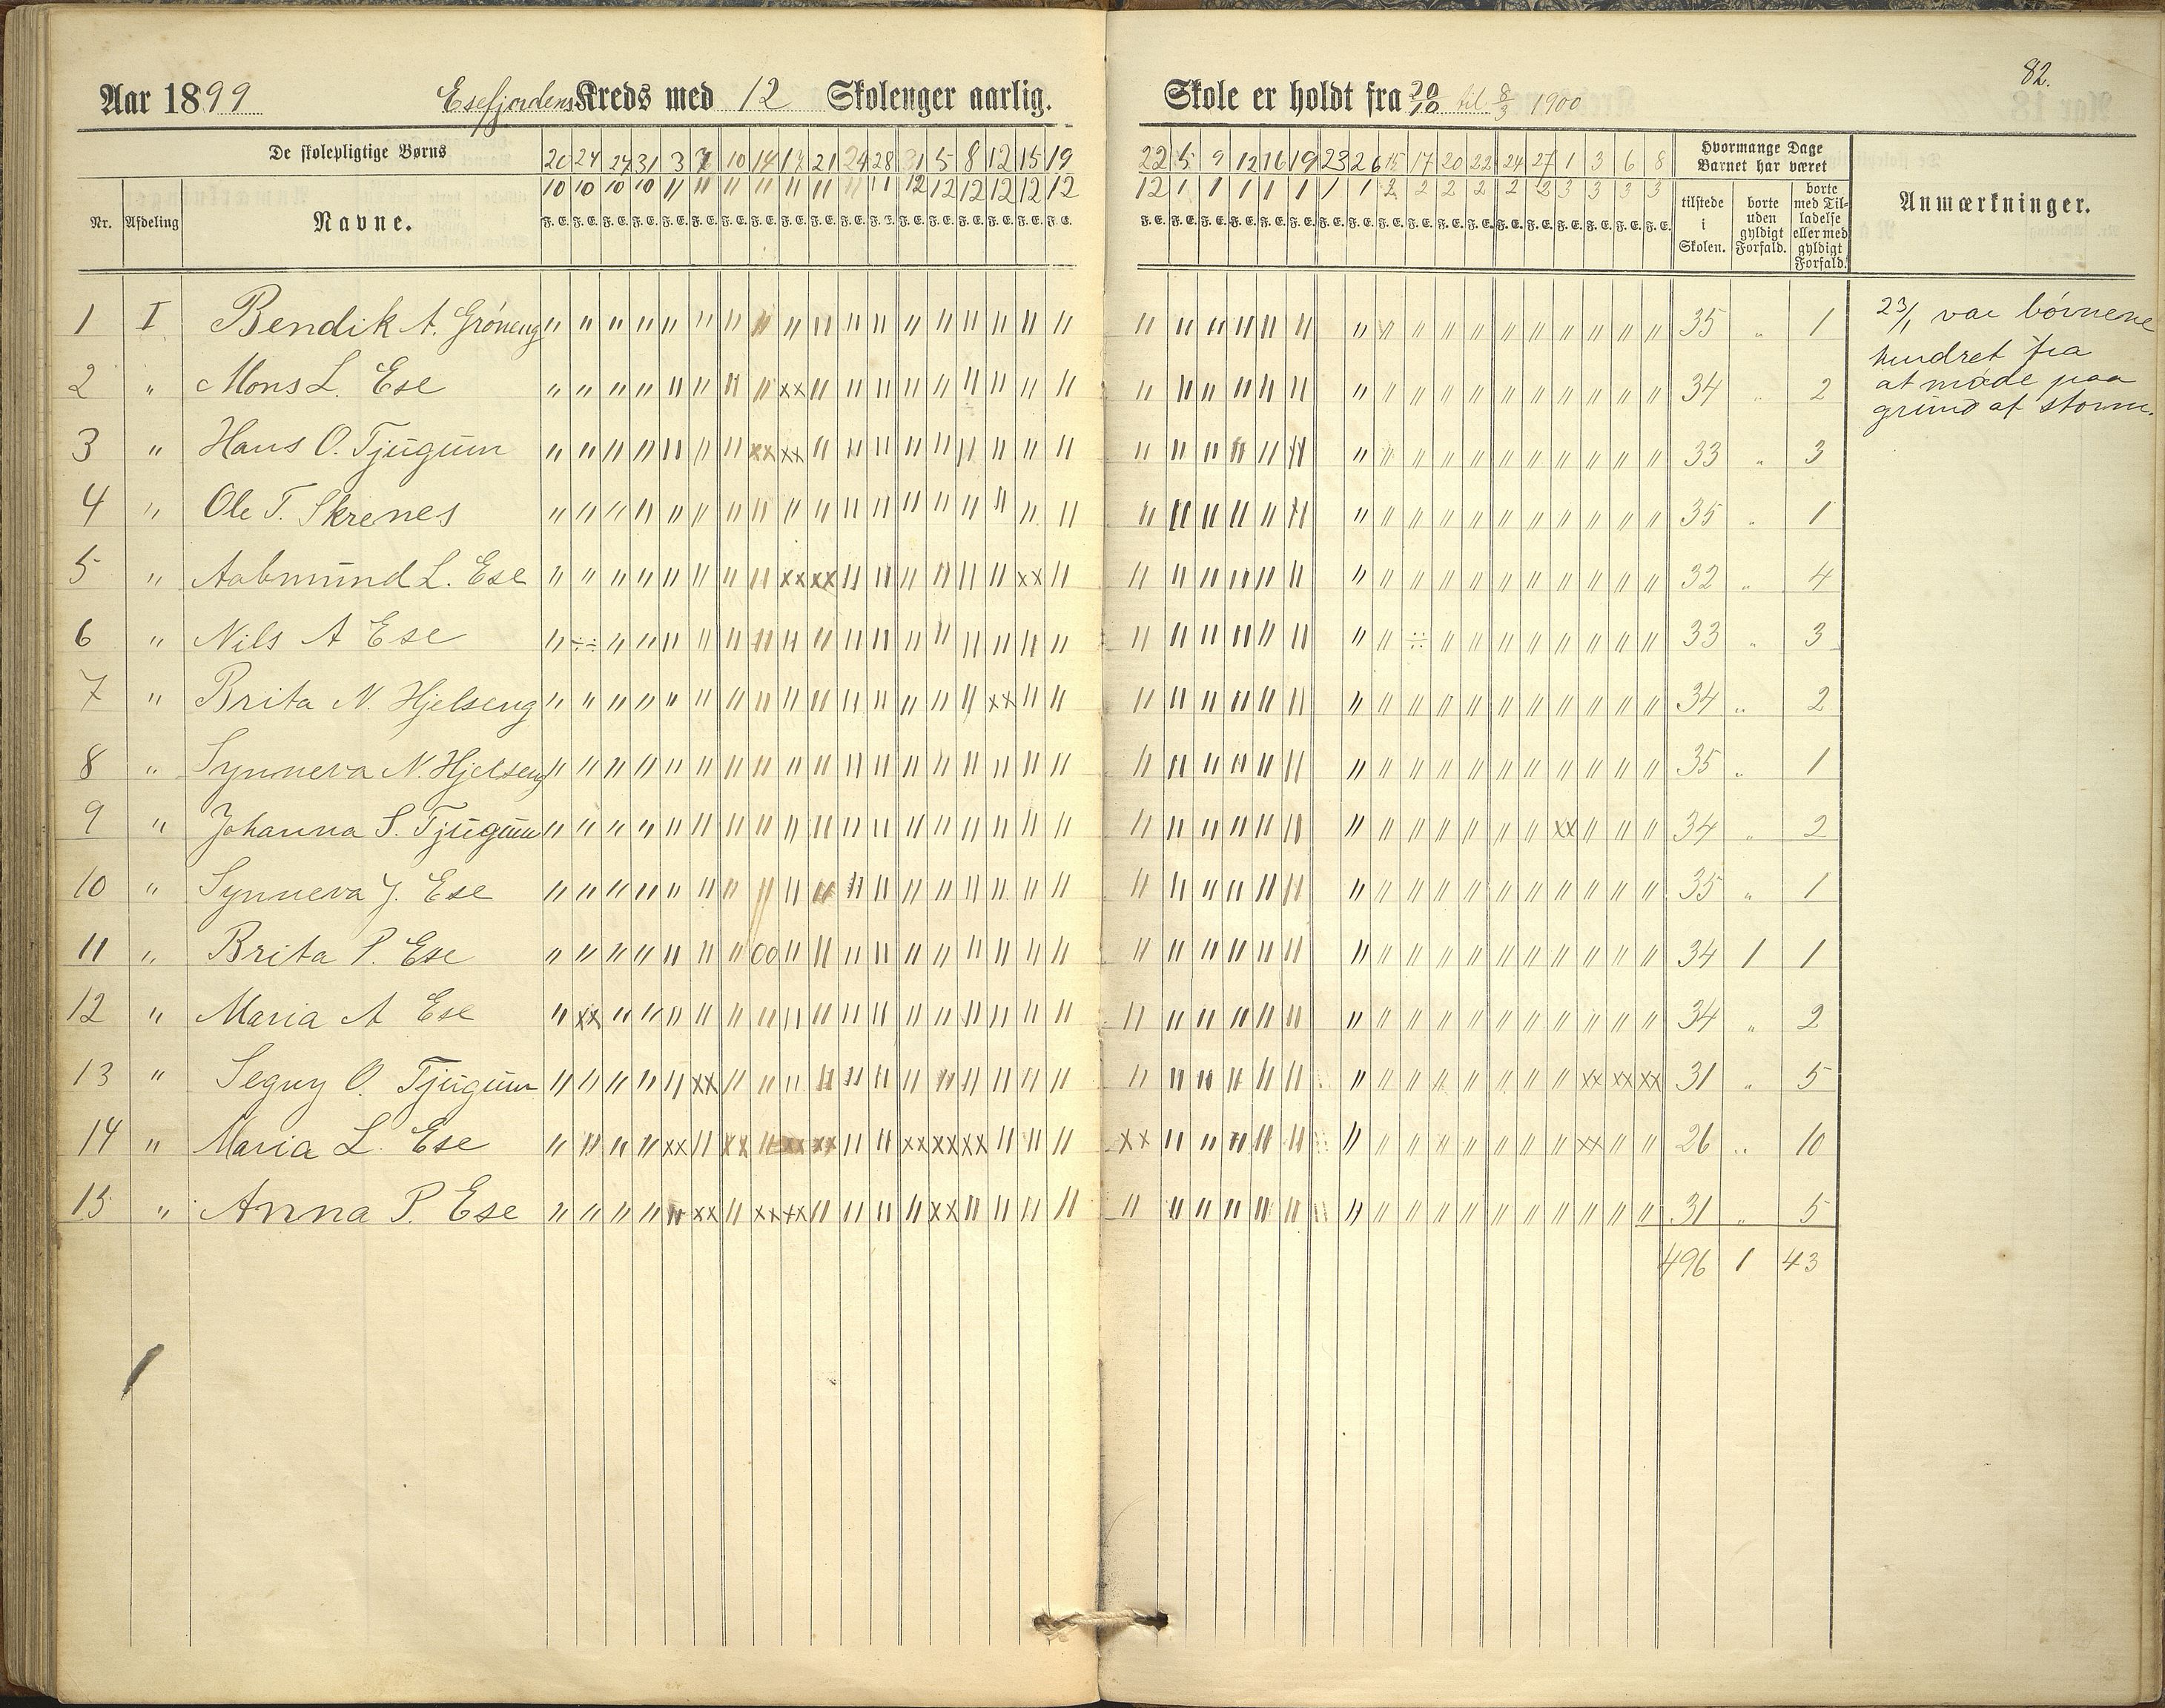 82.
Aar 1899 Esefjordens Kreds med 12 Skolenger aarlig. Skole er holdt fra 20/10 til 8/3 1900
De skolepligtige Børns 20 24 27 31 3 7 10 14 17 21 24 28 1 5 8 12 15 19 22 5 9 12 16 19 23 26 15 17 20 22 24 27 1 3 6 8 Hvormange Dage Barnet har været
10 10 10 10 11 11 11 11 11 11 11 11 12 12 12 12 12 12 12 1 1 1 1 1 1 1 2 2 2 2 2 2 3 3 3 3
Nr. Afdeling Navne. F. E. F. E. F. E. F. E. F. E. F. E. F. E. F. E. F. E. F. E. F. E. F. E. F. E. F. E. F. E. F. E. F. E. F. E. F. E. F. E. F. E. F. E. F. E. F. E. F. E. F. E. F. E. F. E. F. E. F. E. F. E. F. E. F. E. F. E. F. E. F. E. tilstede i Skolen. borte uden gyldigt Forfald. borte med Tilladelse eller med gyldigt Forfald. Anmærkninger.
1 I Bendik A. Grøneng 35 " 1
2 " Mons L. Ese 34 " 2
3 " Hans O. Tjugum 33 " 3
4 " Ole T. Skrenes 35 " 1
5 " Aabmund L. Ese 32 " 4
6 " Nils A Ese 33 " 3
7 " Brita N. Hjelseng 34 " 2
8 " Synneva N. Hjelseng 35 " 1
9 " Johanna S. Tjugum 34 " 2
10 " Synneva J. Ese 35 " 1
11 " Brita P. Ese 34 1 1
12 " Maria A Ese 34 " 2
13 " Seguy O. Tjugum 31 " 5
14 " Maria L. Ese 26 " 10
15 " Anna P. Ese 31 " 5
496 1 43
23/1 var børnene
hindret fra
at møde paa
grund af storm.